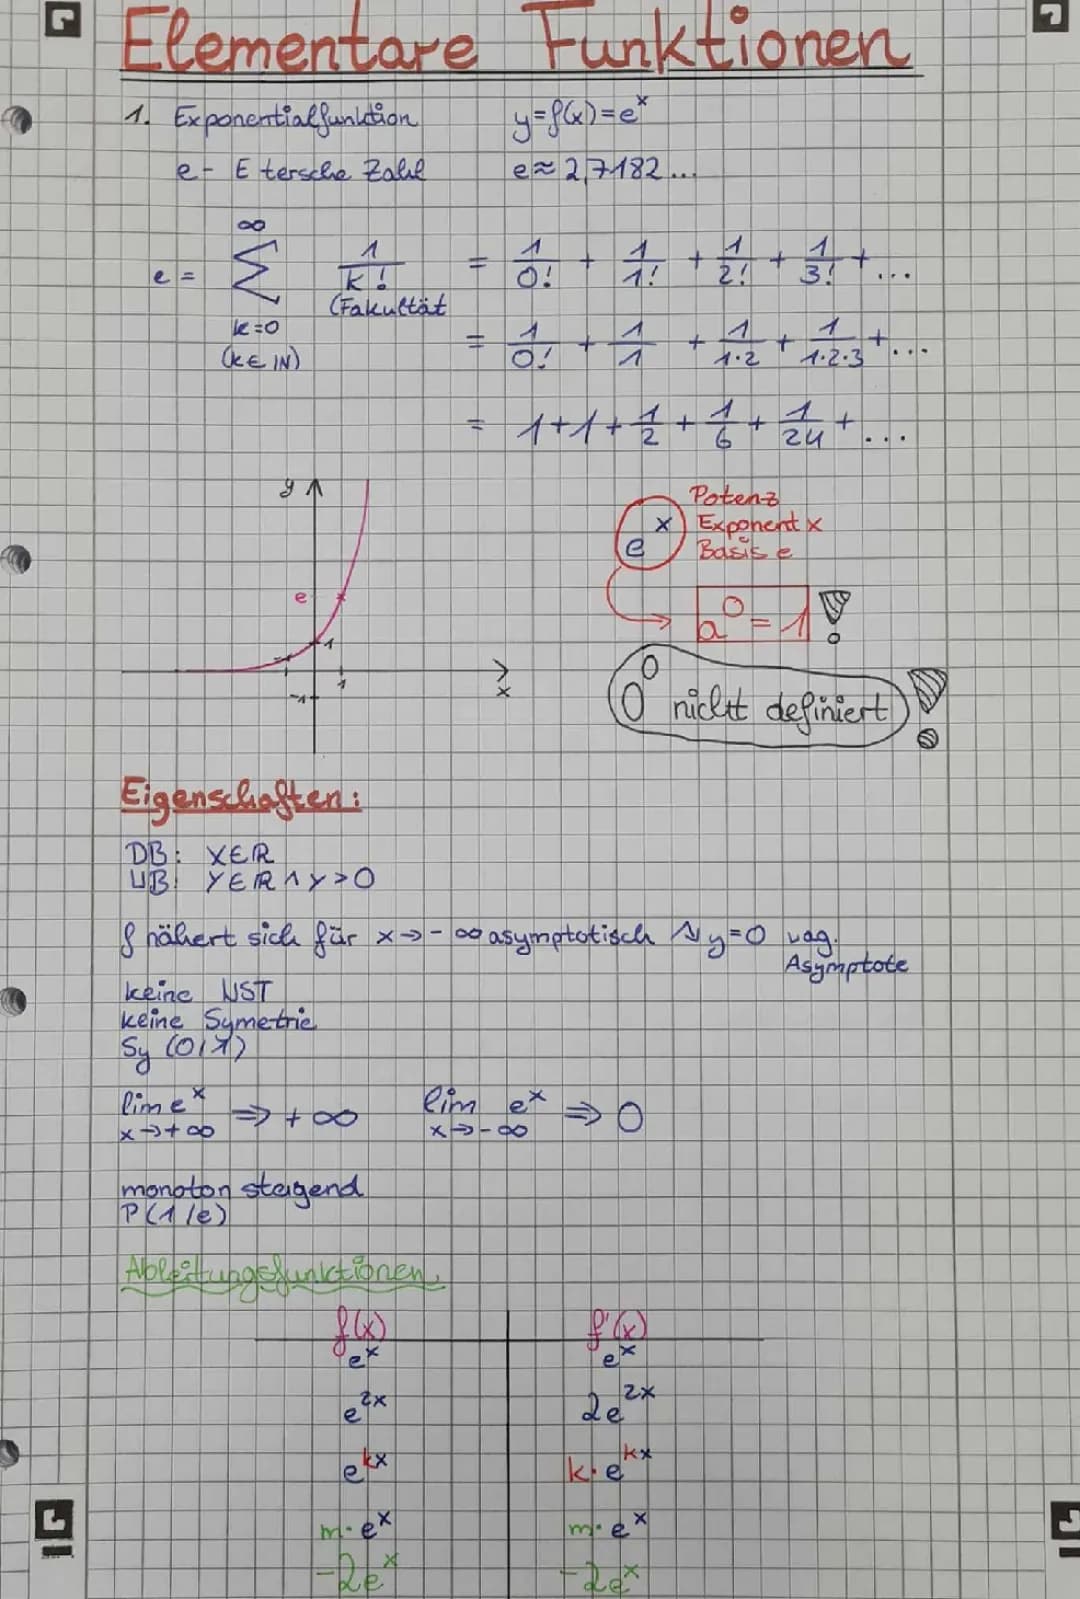 Elementare Funktionen
1. Exponentialfunktion y=f(x)=e^x
e- E tersche Zahl e≈2,7182...
e = ∞ ∑ k=0 (k∈ℕ) 1/k! (Fakultät = 1/0! + 1/1! + 1/2! + 1/3! + ...
= 1/0! + 1/1 + 1/1·2 + 1/1·2·3 + ...
= 1+1+1/2+1/6+1/24+...
y
e
1
-1
1
-1
x
e^x
Potenz
Exponent x
Basis e
a^0=1 !
0^0 nicht definiert !
Eigenschaften:
DB: X∈ℝ
WB: Y∈ℝ ∧ y>0
f nähert sich für x→-∞ asymptotisch y=0 wag.
Asymptote
keine NST
keine Symetrie
Sy (0/1)
lim e^x x→+∞ ⇒ +∞ lim e^x x→-∞ ⇒ 0
monoton steigend
P(1/e)
Ableitungsfunktionen
f(x) f'(x)
e^x e^x
e^2x 2e^2x
e^kx k·e^kx
m·e^x m·e^x
-2e^x -2e^x